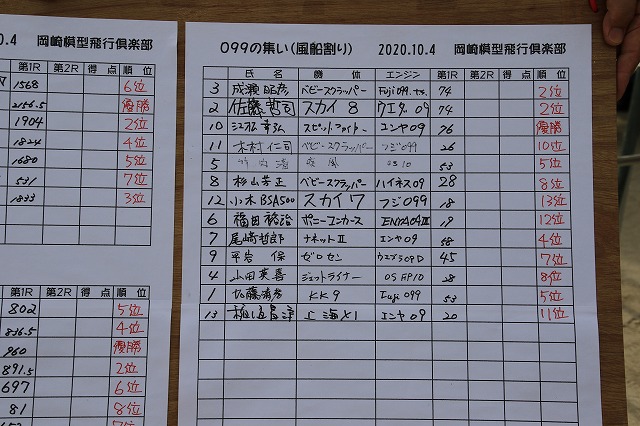 0.4 岡崎模型飛行倶楽部
第1R 第2R 得 点 順 位
1568 6位
2156.5 優勝
1904 2位
1824 4位
1680 5位
531 7位
1833 3位
第1R 第2R 得 点 順 位
802 5位
836.5 4位
960 優勝
891.5 2位
697 6位
81 8位
099の集い(風船割り) 2020.10.4 岡崎模型飛行倶楽部
氏 名 機 体 エンジン 第1R 第2R 得 点 順 位
3 成瀬 昭彦 ベビースクラッパー Fuji099 74 2位
2 佐藤哲司 スカイ 8 ウエダ 09 74 2位
10 スピットファイター エンヤ09 76 優勝
11 木村仁司 ベビースクラッパー フジ099 26 10位
5 疾風 OS10 53 5位
8 杉山芳正 ベビースクラッパー ハイネス09 28 8位
12 小木BSA500 スカイ7 フジ099 18 13位
6 福田 裕治 ポニーコンカース ENYA09III 19 12位
7 尾崎哲郎 ナネットII エンヤ09 4位
9 平岩 保 ゼロセン 45 7位
4 山田英喜 ジェットライナー OSFP10 28 8位
1 加藤 KK9 Fuji099 53 5位
13 上海X1 エンヤ09 20 11位